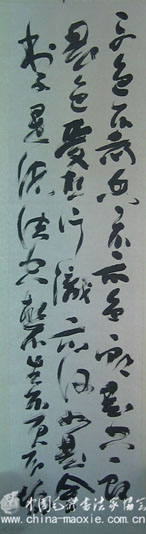 色不異空空不異色色即是空空即
是色受想行識亦復如是舍
利子是諸法空相不生不滅不垢不
中国毛笔书法家协会
www.china-maoxie.com.cn